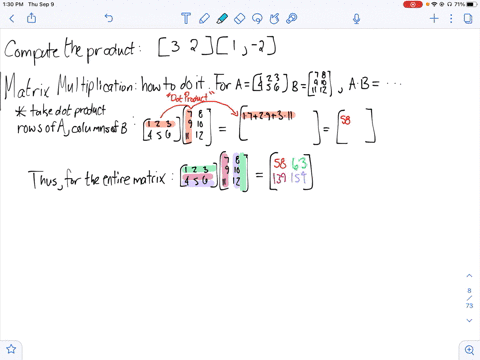 1:30 PM Thu Sep 9
71%
Compute the product: [3 2][1, -2]
Matrix Multiplication: how to do it. For A=[1 2 3 4 5 6] B=[7 8 9 10 11 12], A·B= ···
"Dot Product"
* take dot product
rows of A, columns of B: [1 2 3 4 5 6][7 8 9 10 11 12] = [1·7+2·9+3·11] = [58]
Thus, for the entire matrix: [1 2 3 4 5 6][7 8 9 10 11 12] = [58 63 139 154]
8
/
73